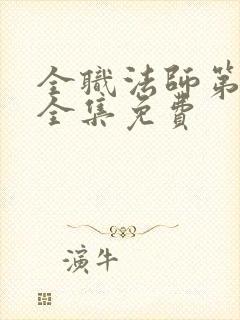 全職法師第
全集免費
演牛